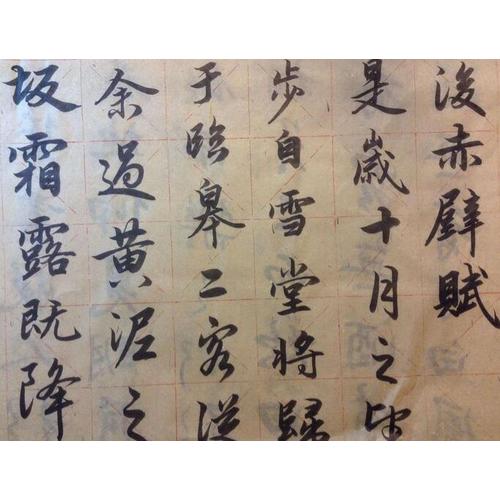 後赤壁賦
是歲十月之望
步自雪堂將歸
于臨皋二客從
余過黃泥之
坂霜露既降